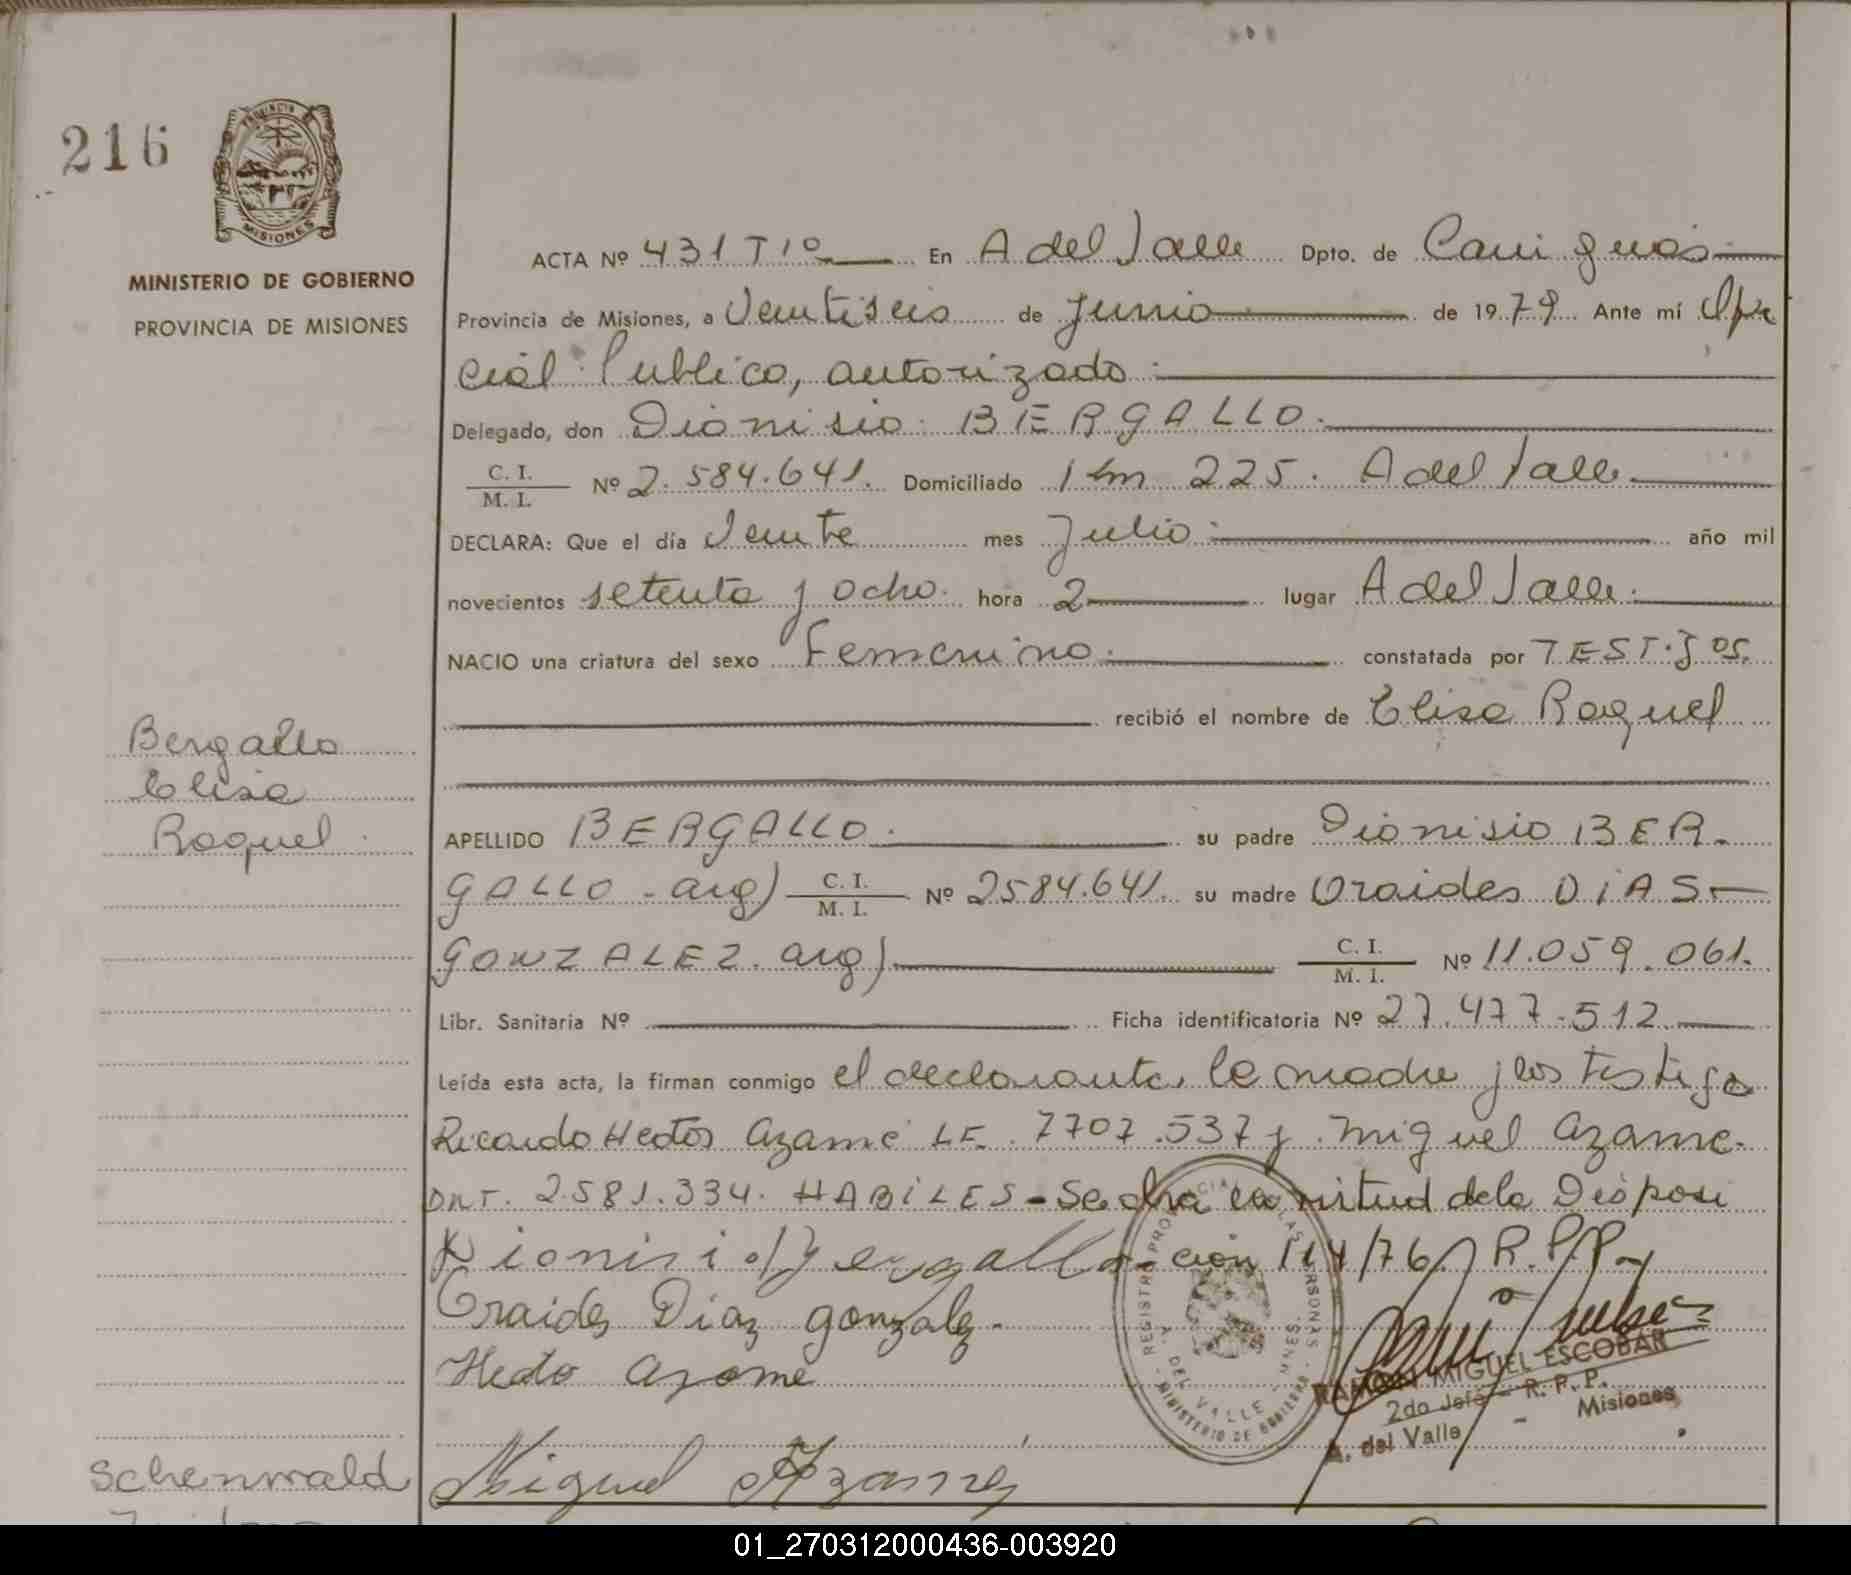 216
PROVINCIA
MISIONES
MINISTERIO DE GOBIERNO
PROVINCIA DE MISIONES
ACTA Nº 431 Tº En A del Valle Dpto. de Cainguás
Provincia de Misiones, a Veintiseis de Junio de 1979 Ante mí Ofi
cial Publico, autorizado
Delegado, don Dionisio BERGALLO.
C. I.
M. I. Nº 2.584.641. Domiciliado Km 225. A del Valle
DECLARA: Que el día Veinte mes Julio año mil
novecientos setenta y ocho. hora 2 lugar A del Valle.
NACIO una criatura del sexo Femenino. constatada por TESTIGOS.
recibió el nombre de Elisa Raquel
Bergallo
Elisa
Raquel
APELLIDO BERGALLO. su padre Dionisio BER-
GALLO - arg) C. I.
M. I. Nº 2584.641. su madre Oraides DIAS
GONZALEZ. arg) C. I.
M. I. Nº 11.059.061.
Libr. Sanitaria Nº Ficha identificatoria Nº 27.477.512.
Leída esta acta, la firman conmigo el declarante, la madre y los testigos
Ricardo Hector Azame LE. 7707.537 y Miguel Azame.
DNI. 2.581.334. HABILES - Se labra en virtud de la Disposi
Dionisio Bergallo cion 114/76 R.P.P.
Oraides Diaz gonzalez.
Hecto Azame
REGISTRO PROVINCIAL DE LAS PERSONAS
A. DEL VALLE - MNES.
MINISTERIO DE GOBIERNO
RAMON MIGUEL ESCOBAR
2do Jefe - R. P. P.
A. del Valle - Misiones
Miguel Azame
Schenwald
01_270312000436-003920